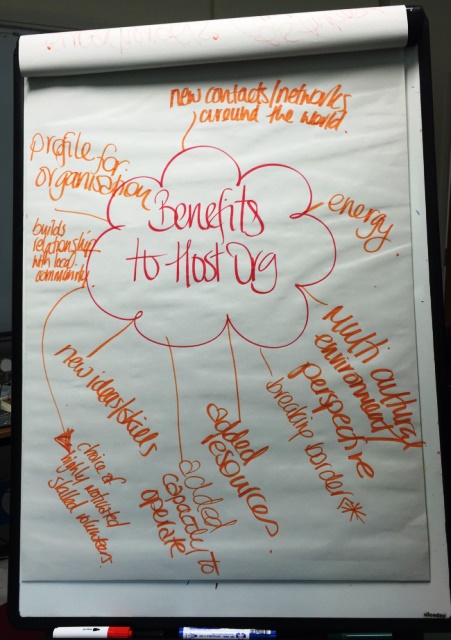 new contacts/networks
around the world.
profile for
organisation
Benefits
to Host Org
energy
builds
relationship
with local
community
Multi cultural
environment/
perspective
breaking borders*
added
resources
added
capacity to
operate
new ideas/skills
choice of
highly motivated
skilled volunteers.